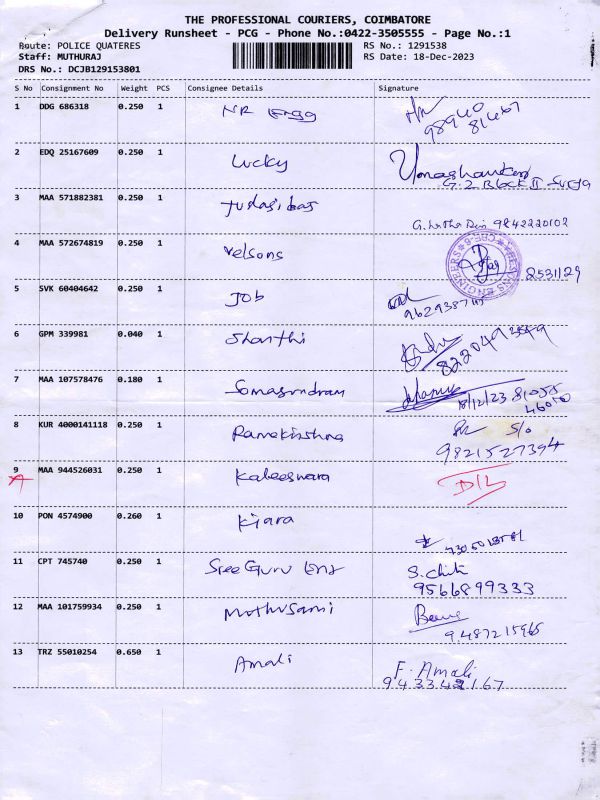 THE PROFESSIONAL COURIERS, COIMBATORE
Delivery Runsheet - PCG - Phone No.:0422-3505555 - Page No.:1
Route: POLICE QUATERES
RS No.: 1291538
Staff: MUTHURAJ
RS Date: 18-Dec-2023
DRS No.: DCJB129153801
S No Consignment No Weight PCS Consignee Details Signature
1 DDG 686318 0.250 1 NR Engg
98940
81467
2 EDQ 25167609 0.250 1 Lucky Umashankar
G-2 Block II
3 MAA 571882381 0.250 1 Tulasi bai
9842220102
4 MAA 572674819 0.250 1 Velsons
ENGINEERS
2531129
5 SVK 60404642 0.250 1 JOB
6 GPM 339981 0.040 1 Shanthi
7 MAA 107578476 0.180 1 Somasundram
18/12/23
8 KUR 4000141118 0.250 1 Ramakrishna S/o
9821527394
9 MAA 944526031 0.250 1 Kabeeswara D/L
10 PON 4574900 0.260 1 Kiara
11 CPT 745740 0.250 1 Sree Guru Ent S.Chiti
9566899333
12 MAA 101759934 0.250 1 Muthusami
9487215965
13 TRZ 55010254 0.650 1 Amali F. Amali
9433421167